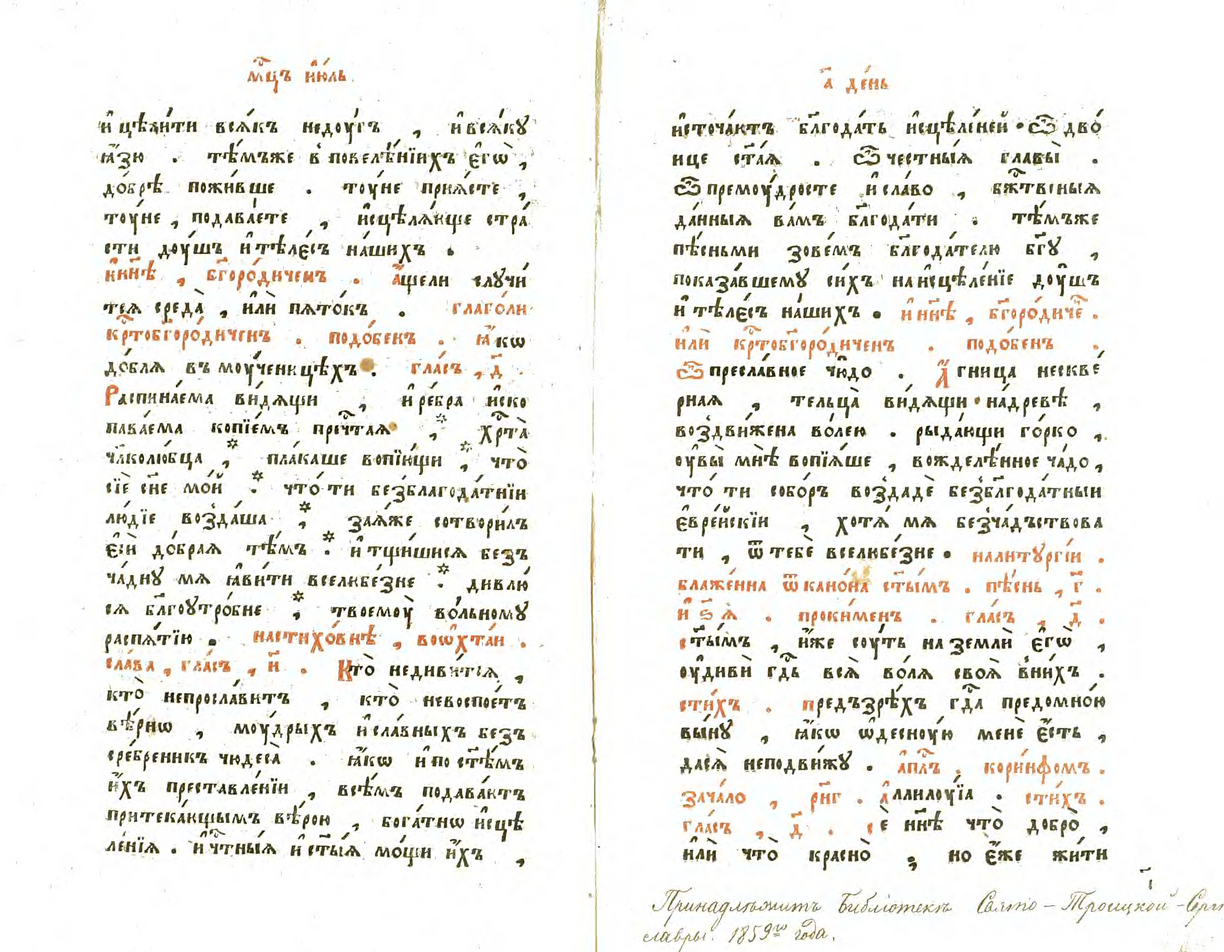 мⷭ҇цъ і҆ю́ль.
и҆ цѣли́ти всѧ́къ недоу́гъ , и҆ всѧ́кꙋ
ꙗ҆́зю . тѣ́мъже в̾ повелѣ́нїихъ є҆гѡ̀ ,
до́брѣ пожи́вше . тоу́не прїѧ́сте ,
тоу́не , подава́ете , и҆сцѣлѧ́юще стра́
сти доу́шъ и҆ тѣле́съ на́шихъ .
и҆ нн҃ѣ , бг҃оро́диченъ . а҆́щели слꙋчи́
тсѧ среда̀ , и҆лѝ пѧто́къ . глаго́ли
крⷭ҇тобг҃оро́диченъ . подо́бенъ . ꙗ҆́кѡ
до́блѧ въ моу́ченицѣхъ . гла́съ , д҃ .
Распина́ема ви́дѧщи , и҆ ре́бра и҆ско
пава́ема копїе́мъ пречⷭ҇таѧ , * Хрⷭ҇та̀
чл҃колю́бца , * пла́каше вопїю́щи , * что̀
сїѐ сн҃е мо́й . * что́ ти безблагода́тнїи
лю́дїе возда́ша , * за ѧ҆́же сотвори́лъ
є҆сѝ до́браѧ тѣ́мъ . * и҆ тщи́шисѧ безъ
ча́днꙋ мѧ ꙗ҆ви́ти вселюбе́зне . * дивлю́
сѧ бл҃гоꙋтро́бне , * твоемоу̀ во́льномꙋ
распѧ́тїю . на стихо́внѣ , во ѡ҆хта́и .
сла́ва , гла́съ , и҃ . Кто̀ не диви́тсѧ ,
кто̀ непросла́витъ , кто̀ невоспое́тъ
вѣ́рнѡ , моу́дрыхъ и҆ сла́вныхъ безъ
сре́бреникъ чꙋдеса̀ . ꙗ҆́кѡ и҆ по ст҃ѣ́мъ
и҆́хъ преставле́нїи , всѣ́мъ подава́ютъ
притека́ющымъ вѣ́рою , бога́тнѡ и҆сцѣ
ле́нїѧ . и҆ чⷭ҇тны́ѧ и҆ ст҃ы́ѧ мо́щи и҆́хъ ,
а҃ де́нь
и҆сточа́ютъ бл҃года́ть и҆сцѣле́ней . Ѽ дво́
ице ст҃а́ѧ . Ѽ че́стныѧ главы̀ .
Ѽ премоу́дросте и҆ сла́во , бжⷭ҇твеныѧ
да́нныѧ ва́мъ бл҃года́ти . тѣ́мъже
пѣ́сньми зове́мъ бл҃года́телю бг҃ꙋ ,
показа́вшемꙋ си́хъ на и҆сцѣле́нїе доу́шъ
и҆ тѣле́съ на́шихъ . и҆ нн҃ѣ , бг҃оро́диче .
и҆лѝ крⷭ҇тобг҃оро́диченъ . подо́бенъ .
Ѽ пресла́вное чю́до . А҆́гница нескве́
рнаѧ , тельца̀ ви́дѧщи на дре́вѣ ,
воздви́жена во́лею . рыда́ющи го́рко ,
оу҆вы̀ мнѣ̀ вопїѧ́ше , вожделѣ́нное ча́до ,
что́ ти собо́ръ воздадѐ безбл҃года́тныи
є҆вре́йскїи , хотѧ́ мѧ безча́дъствова
ти , ѿ тебѐ вселюбе́зне . на литꙋргі́и .
блаже́нна ѿ кано́на ст҃ы́мъ . пѣ́снь , г҃ .
и҆ ѕ҃ ѧ . проки́менъ . гла́съ , д҃ .
ст҃ы́мъ , и҆́же соу́ть на землѝ є҆гѡ̀ ,
оу҆дивѝ гдⷭ҇ь всѧ̀ во́лѧ своѧ̀ в̾ ни́хъ .
сти́хъ . предъзрѣ́хъ гдⷭ҇а предо мно́ю
вы́нꙋ , ꙗ҆́кѡ ѡ҆десноу́ю менѐ є҆́сть ,
да сѧ̀ неподви́жꙋ . а҆пⷭ҇лъ . кори́нфомъ .
зача́ло , рн҃г . а҆ллилоу́їа . сти́хъ .
гла́съ , д҃ . сѐ нн҃ѣ что̀ добро̀ ,
и҆лѝ что̀ красно̀ ; но є҆́же жи́ти
Принадлежитъ Библіотекѣ Свято-Троицкой-Серг
лавры. 1859го года.